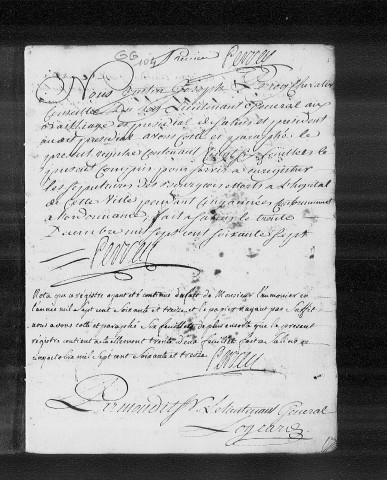 GG
104 Premier Perrey
Nous Joseph Chevalier
Conseiller du Roy Lieutenant General au
Bailliage et presidial de Salins et president
audit presidial avons cotté et paraphé le
present registre contenant feuillets le
present compris pour servir a enregistrer
les sepultures des bourgeois morts a l'hopital
de cette ville pendant années conformement
a l'ordonnance, fait a Salins le trente
Decembre mil sept cent soixante sept
Perrey
Nota que ce registre ayant été continué du fait de Monsieur l'aumonier en
l'année mil sept cent soixante et treize, et le papier n'ayant pas suffit
nous avons cotté et paraphé six feuillets de plus ensorte que le present
registre contient actuellement trente deux feuillets fait a Salins le
mil sept cent soixante et treize
Perrey
Lieutenant General